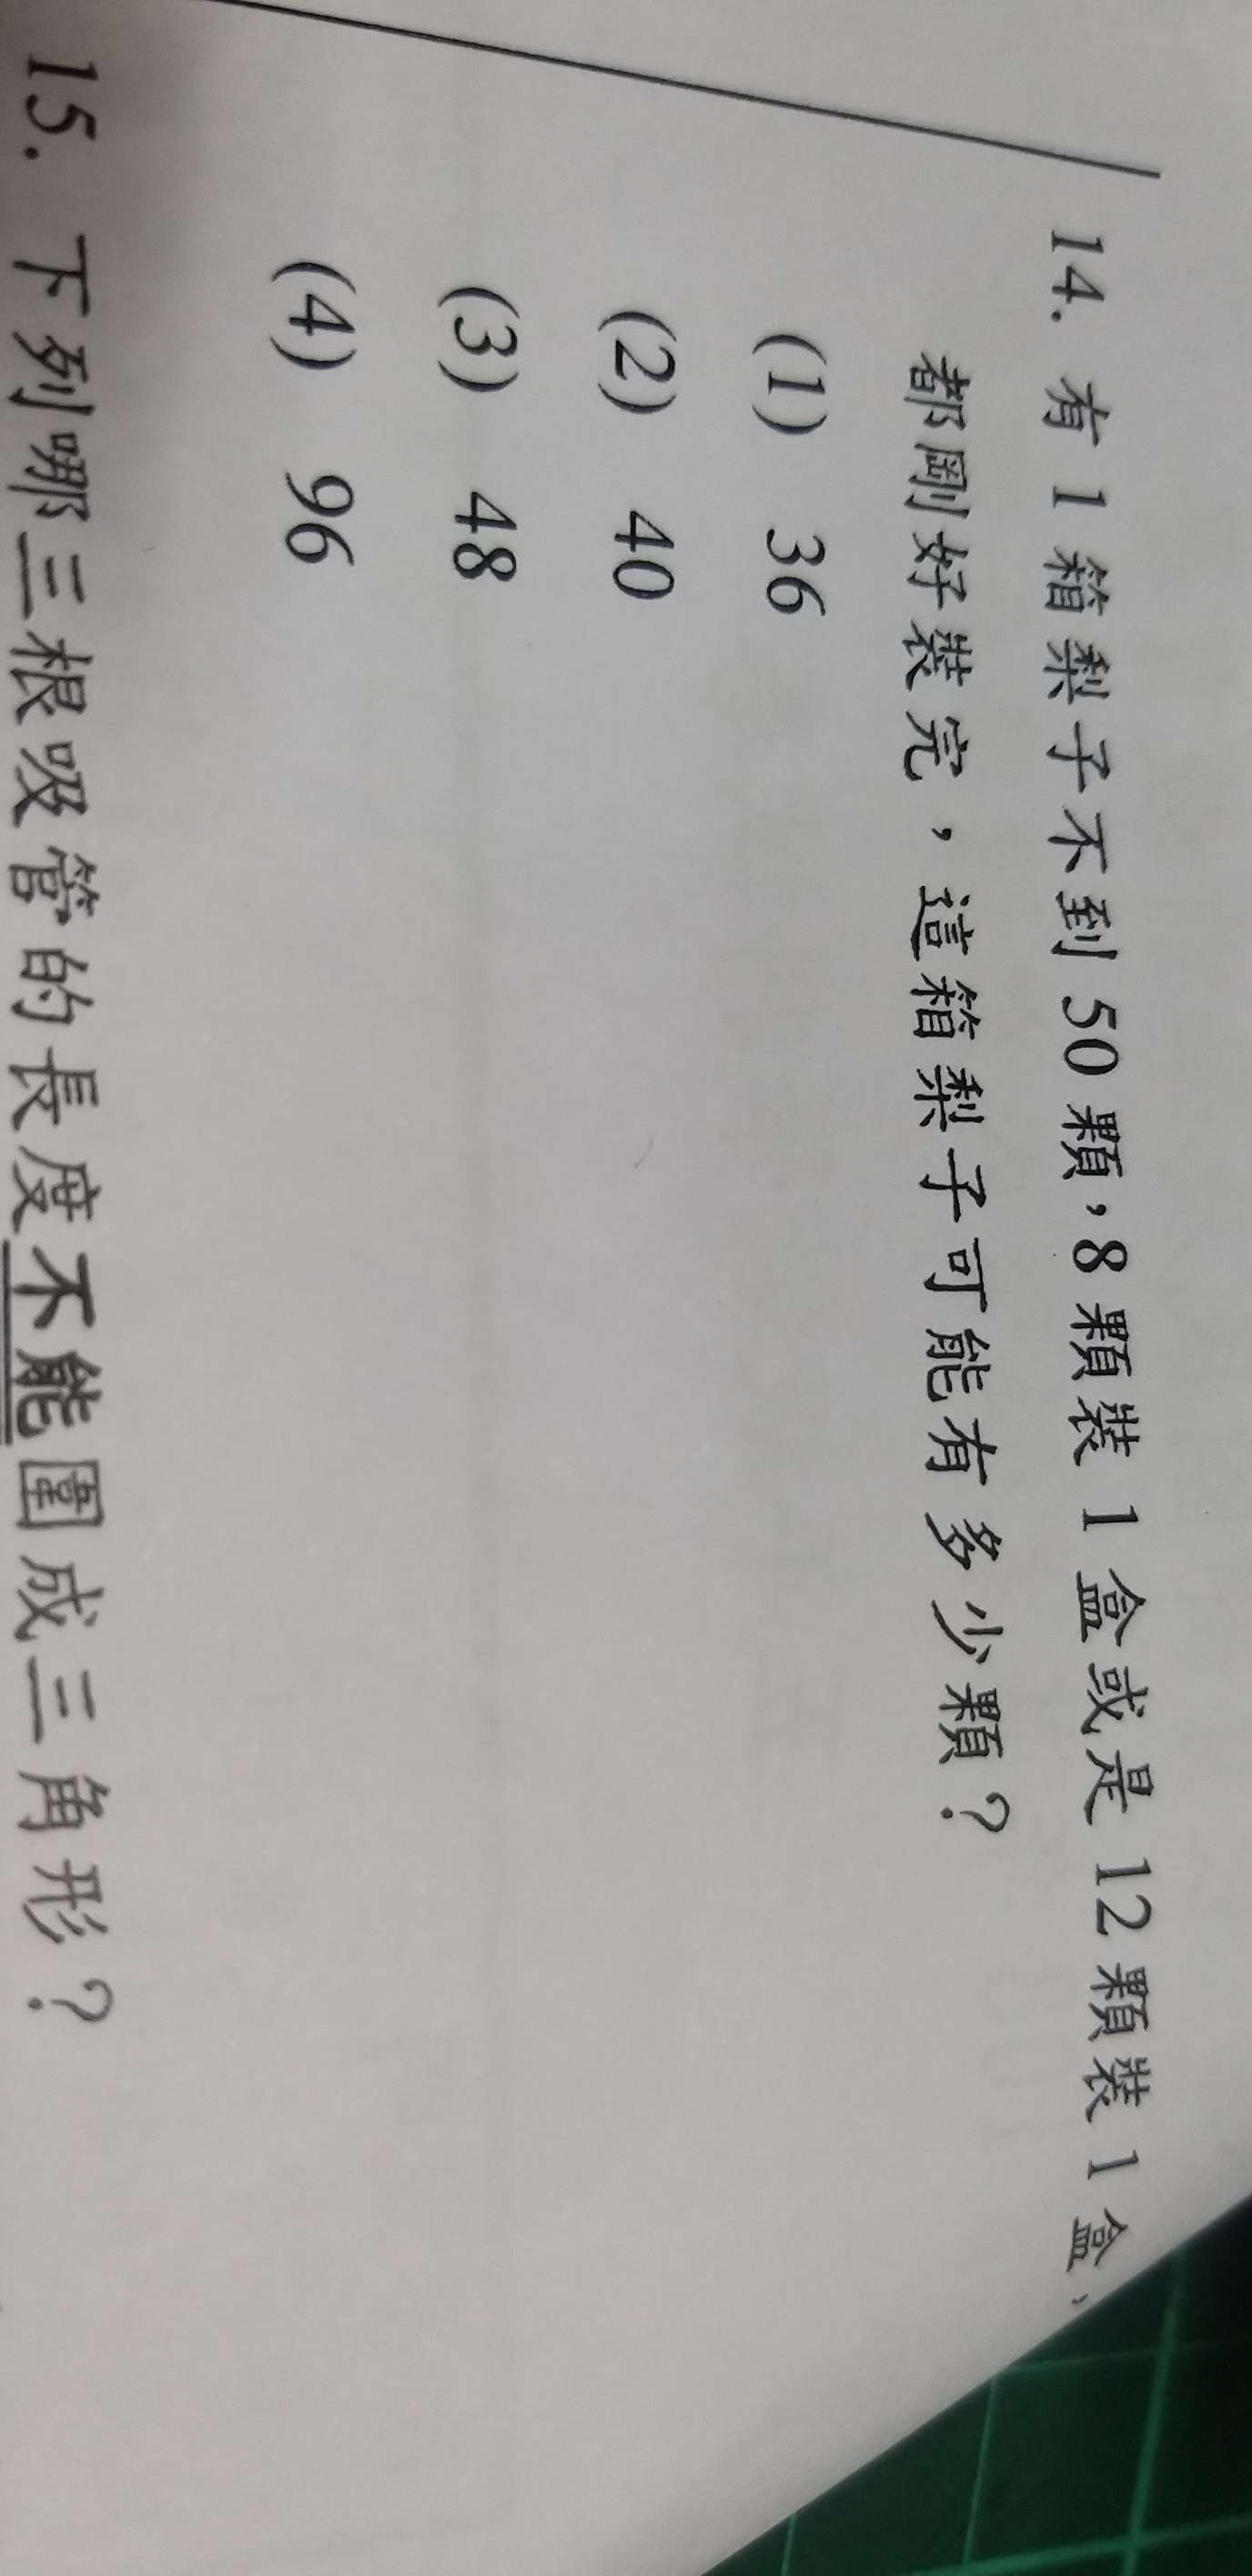 14. 有 1 箱梨子不到 50 顆,8 顆裝 1 盒或是 12 顆裝 1 盒,
都剛好裝完,這箱梨子可能有多少顆?
(1) 36
(2) 40
(3) 48
(4) 96
15. 下列哪三根吸管的長度不能圍成三角形?